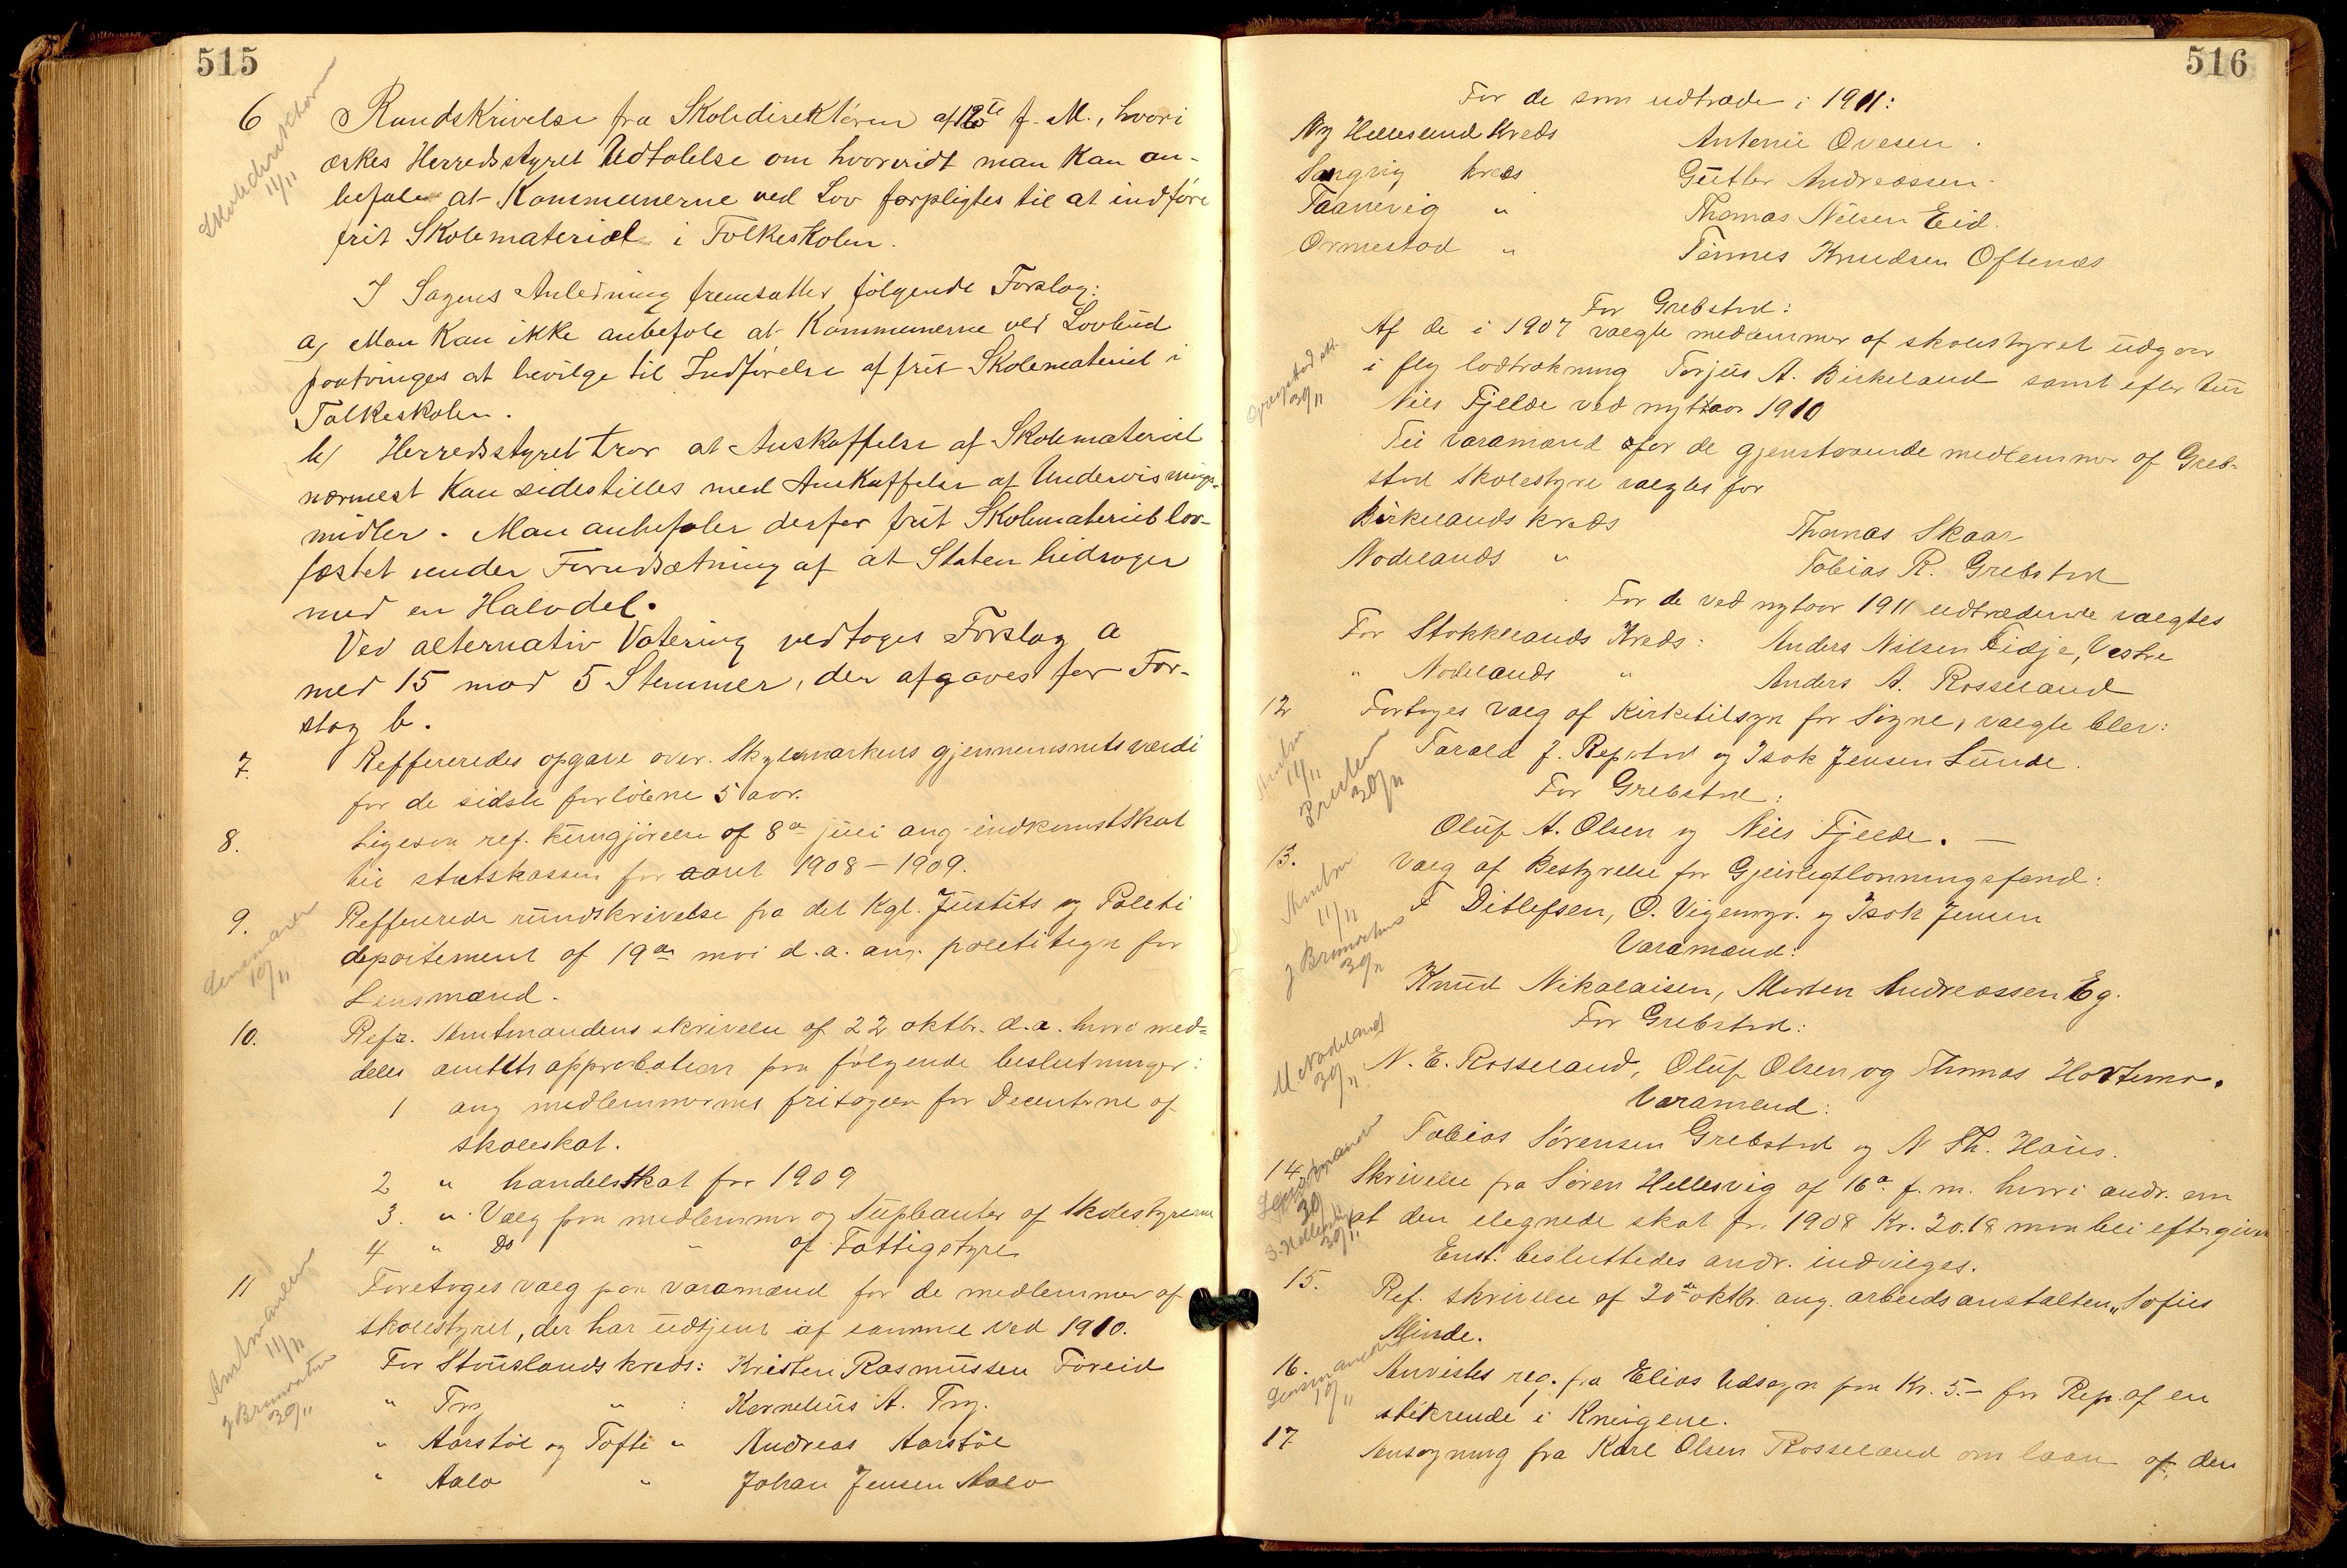 515
6 Rundskrivelse fra Skoledirektøren af 12te f. M., hvori
æskes Herredsstyret Udtalelse om hvorvidt man kan an-
befale at Kommunerne ved Lov forpligtes til at indføre
frit Skolemateriel i Folkeskolen.
Skoledirektøren 11/11
I Sagens Anledning fremsattes følgende Forslag:
a) Man kan ikke anbefale at Kommunerne ved Lovbud
paatvinges at bevilge til Indførelse af frit Skolemateriel i
Folkeskolen.
b) Herredsstyret tror at Anskaffelse af Skolemateriel
nærmest kan sidestilles med Anskaffelse af Undervisnings-
midler. Man anbefaler derfor frit Skolemateriel lov-
fæstet under Forudsætning af at Staten bidrager
med en Halvdel.
Ved alternativ Votering vedtoges Forslag a
med 15 mod 5 Stemmer, der afgaves for For-
slag b.
7. Reffereredes opgave over Skyldmarkens gjennemsnitsværdi
for de sidste forløbne 5 aar.
8. Ligesom ref. kungjørelse af 8de juli ang. indkomstskat
til statskassen for aaret 1908-1909.
9. Reffererede rundskrivelse fra det Kgl. Justits og Politi
departement af 19de mai d.a. ang. polititegn for
Lensmænd.
Lensmanden 10/11
10. Ref. Amtmandens skrivelse af 22 oktbr. d.a. hvori med-
deles amtets approbation paa følgende beslutninger:
1 ang medlemmernes fritagelse for Decenterne af
skoleskat.
2 " handelsskat for 1909
3. " Valg paa medlemmer og Supleanter af Skolestyrerne
4 " Do " af Fattigstyre
11 Foretoges valg paa varamænd for de medlemmer af
skolestyret, der har udtjent af samme ved 1910.
Amtmanden 11/11
30/11
For Stouslands kreds: Kristen Rasmussen Føreid
" Try " : Kornelius A. Try.
" Aarstøl og Tofte " Andreas Aarstøl
" Aalo " Johan Jensen Aalo
516
For de som udtræde i 1911:
Ny Hellesund Kreds Antonie Ovesen.
Sangvig kreds Gütler Andreassen.
Taanevig " Thomas Nilsen Eid.
Ormestad " Tønnes Knudsen Oftenæs
For Grebstad:
Af de i 1907 valgte medlemmer af skolestyret udgaar
i flg lodtrækning Torjus A. Birkeland samt efter tur
Niels Fjelde ved nytaar 1910
30/11
Til varamænd for de gjenstaaende medlemmer af Greb-
stad skolestyre valgtes for
Birkelands kreds Thomas Skaar
Nodelands " Tobias R. Grebstad
For de ved nytaar 1911 udtrædende valgtes
For Stokkelands Kreds: Anders Nilsen Tidje, Vestre
" Nodelands " Anders A. Rosseland
12 Fortoges valg af Kirketilsyn for Søgne, valgte blev:
Tarald J. Repstad og Isak Jensen Lunde.
11/11
Presten 30/11
For Grebstad:
Oluf A. Olsen og Niels Fjelde. —
13. Valg af Bestyrelse for Gjeistligtlønningsfond:
T Ditlefsen, O. Vigemyr. og Isak Jensen
11/11
30/11
Varamænd:
Knud Nikolaisen, Morten Andreassen Eg.
For Grebstad:
N. E. Rosseland, Oluf Olsen og Thomas Hortemo.
M Nodeland 30/11
Varamænd:
Tobias Sørensen Grebstad og N Th. Haus.
14. Skrivelse fra Søren Hellesvig af 16de f.m. hvori andr. om
at den ilignede skat for 1908 Kr. 20.18 maa bli eftergivet
Lensmanden 30/11
S. Hellesvig 30/11
Enst. besluttedes andr. indvilges.
15. Ref. skrivelse af 20de oktbr. ang. arbeidsanstalten "Sofies
Minde.
16. Anvistes reg. fra Elias Udsogn paa Kr. 5.- for Rep. af en
stikrende i Kneigene.
Lensmanden 10/11
17. Ansøgning fra Karl Olsen Rosseland om laan af den